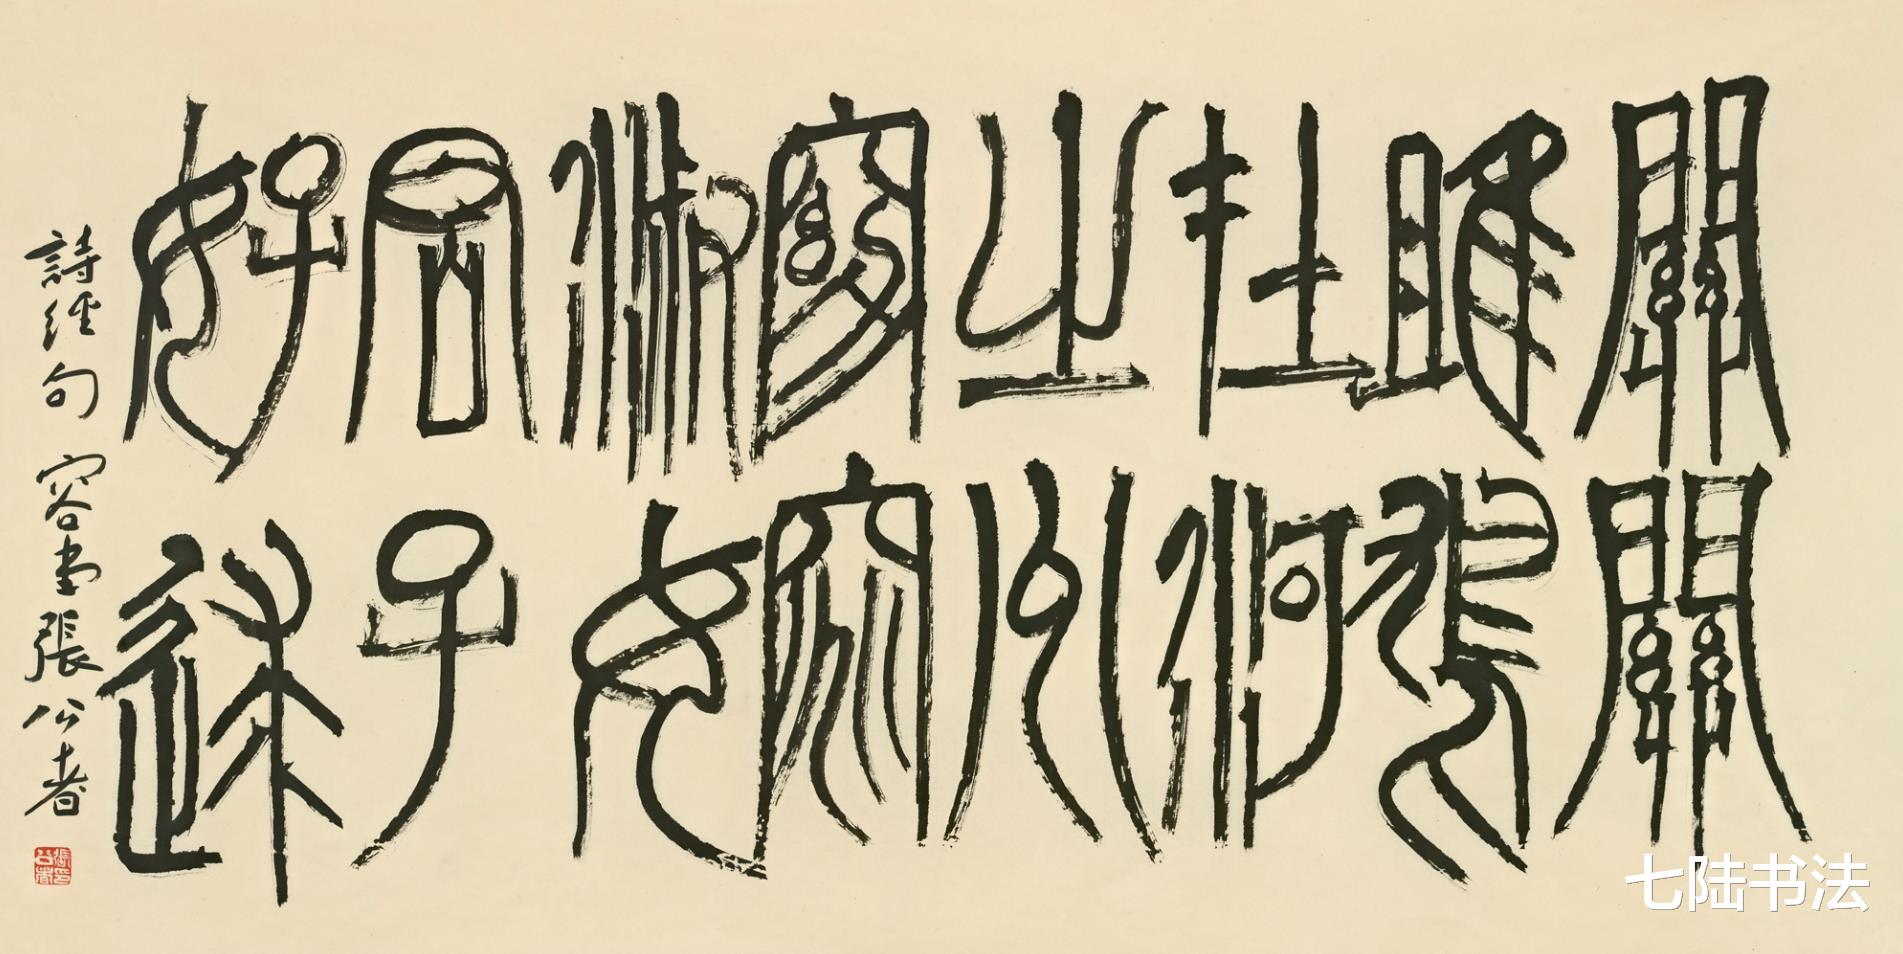 關關
雎鳩
在河
之州
窈窕
淑女
君子
好逑
詩經句 容堂張公者
張印公者
七陆书法